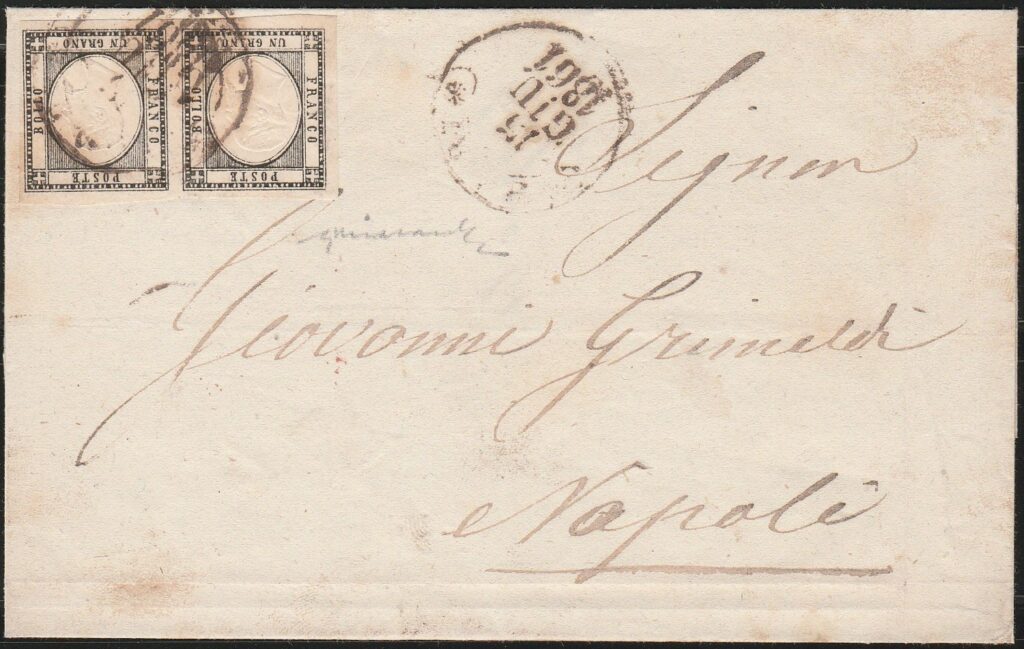 UN GRANO
BOLLO
FRANCO
POSTE
UN GRANO
BOLLO
FRANCO
POSTE
13
GIU
1861
Signor
Giovanni Grimaldi
Napoli